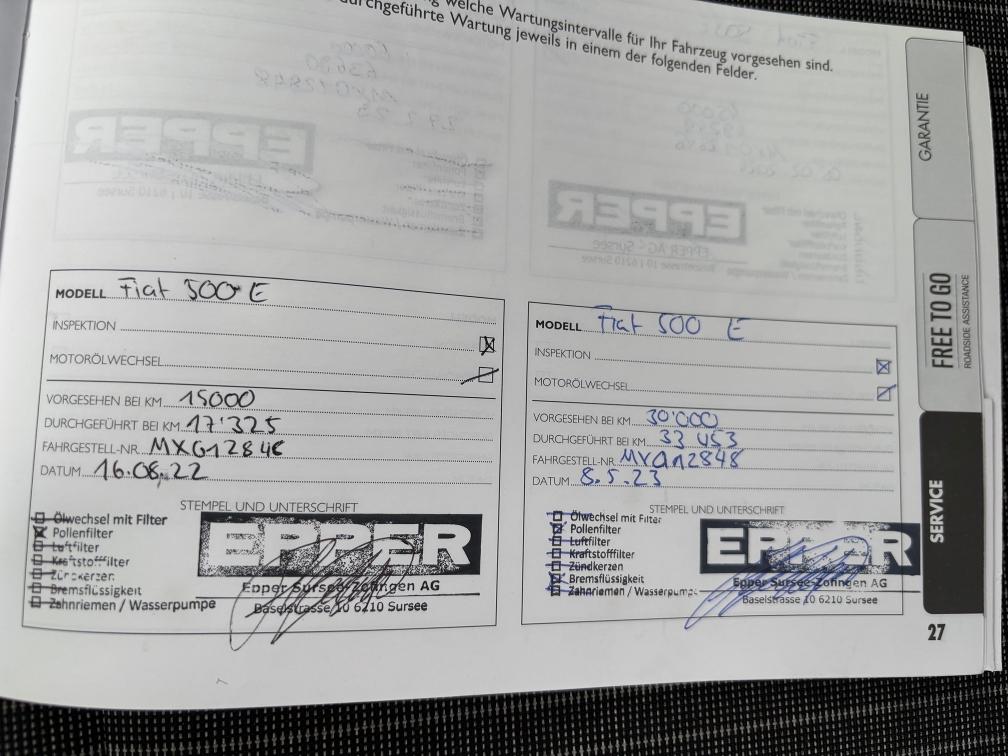 welche Wartungsintervalle für Ihr Fahrzeug vorgesehen sind.
durchgeführte Wartung jeweils in einem der folgenden Felder.
GARANTIE
FREE TO GO
ROADSIDE ASSISTANCE
SERVICE
MODELL Fiat 500 E
INSPEKTION
MOTORÖLWECHSEL
VORGESEHEN BEI KM 15000
DURCHGEFÜHRT BEI KM 17'325
FAHRGESTELL-NR. MXG12848
DATUM 16.08.22
STEMPEL UND UNTERSCHRIFT
Ölwechsel mit Filter
Pollenfilter
Luftfilter
Kraftstofffilter
Zündkerzen
Bremsflüssigkeit
Zahnriemen / Wasserpumpe
EPPER
Epper Sursee-Zofingen AG
Baselstrasse 10 6210 Sursee
MODELL Fiat 500 E
INSPEKTION
MOTORÖLWECHSEL
VORGESEHEN BEI KM 30'000
DURCHGEFÜHRT BEI KM 33 453
FAHRGESTELL-NR. MXG12848
DATUM 8.5.23
STEMPEL UND UNTERSCHRIFT
Ölwechsel mit Filter
Pollenfilter
Luftfilter
Kraftstofffilter
Zündkerzen
Bremsflüssigkeit
Zahnriemen / Wasserpumpe
EPPER
Epper Sursee-Zofingen AG
Baselstrasse 10 6210 Sursee
27